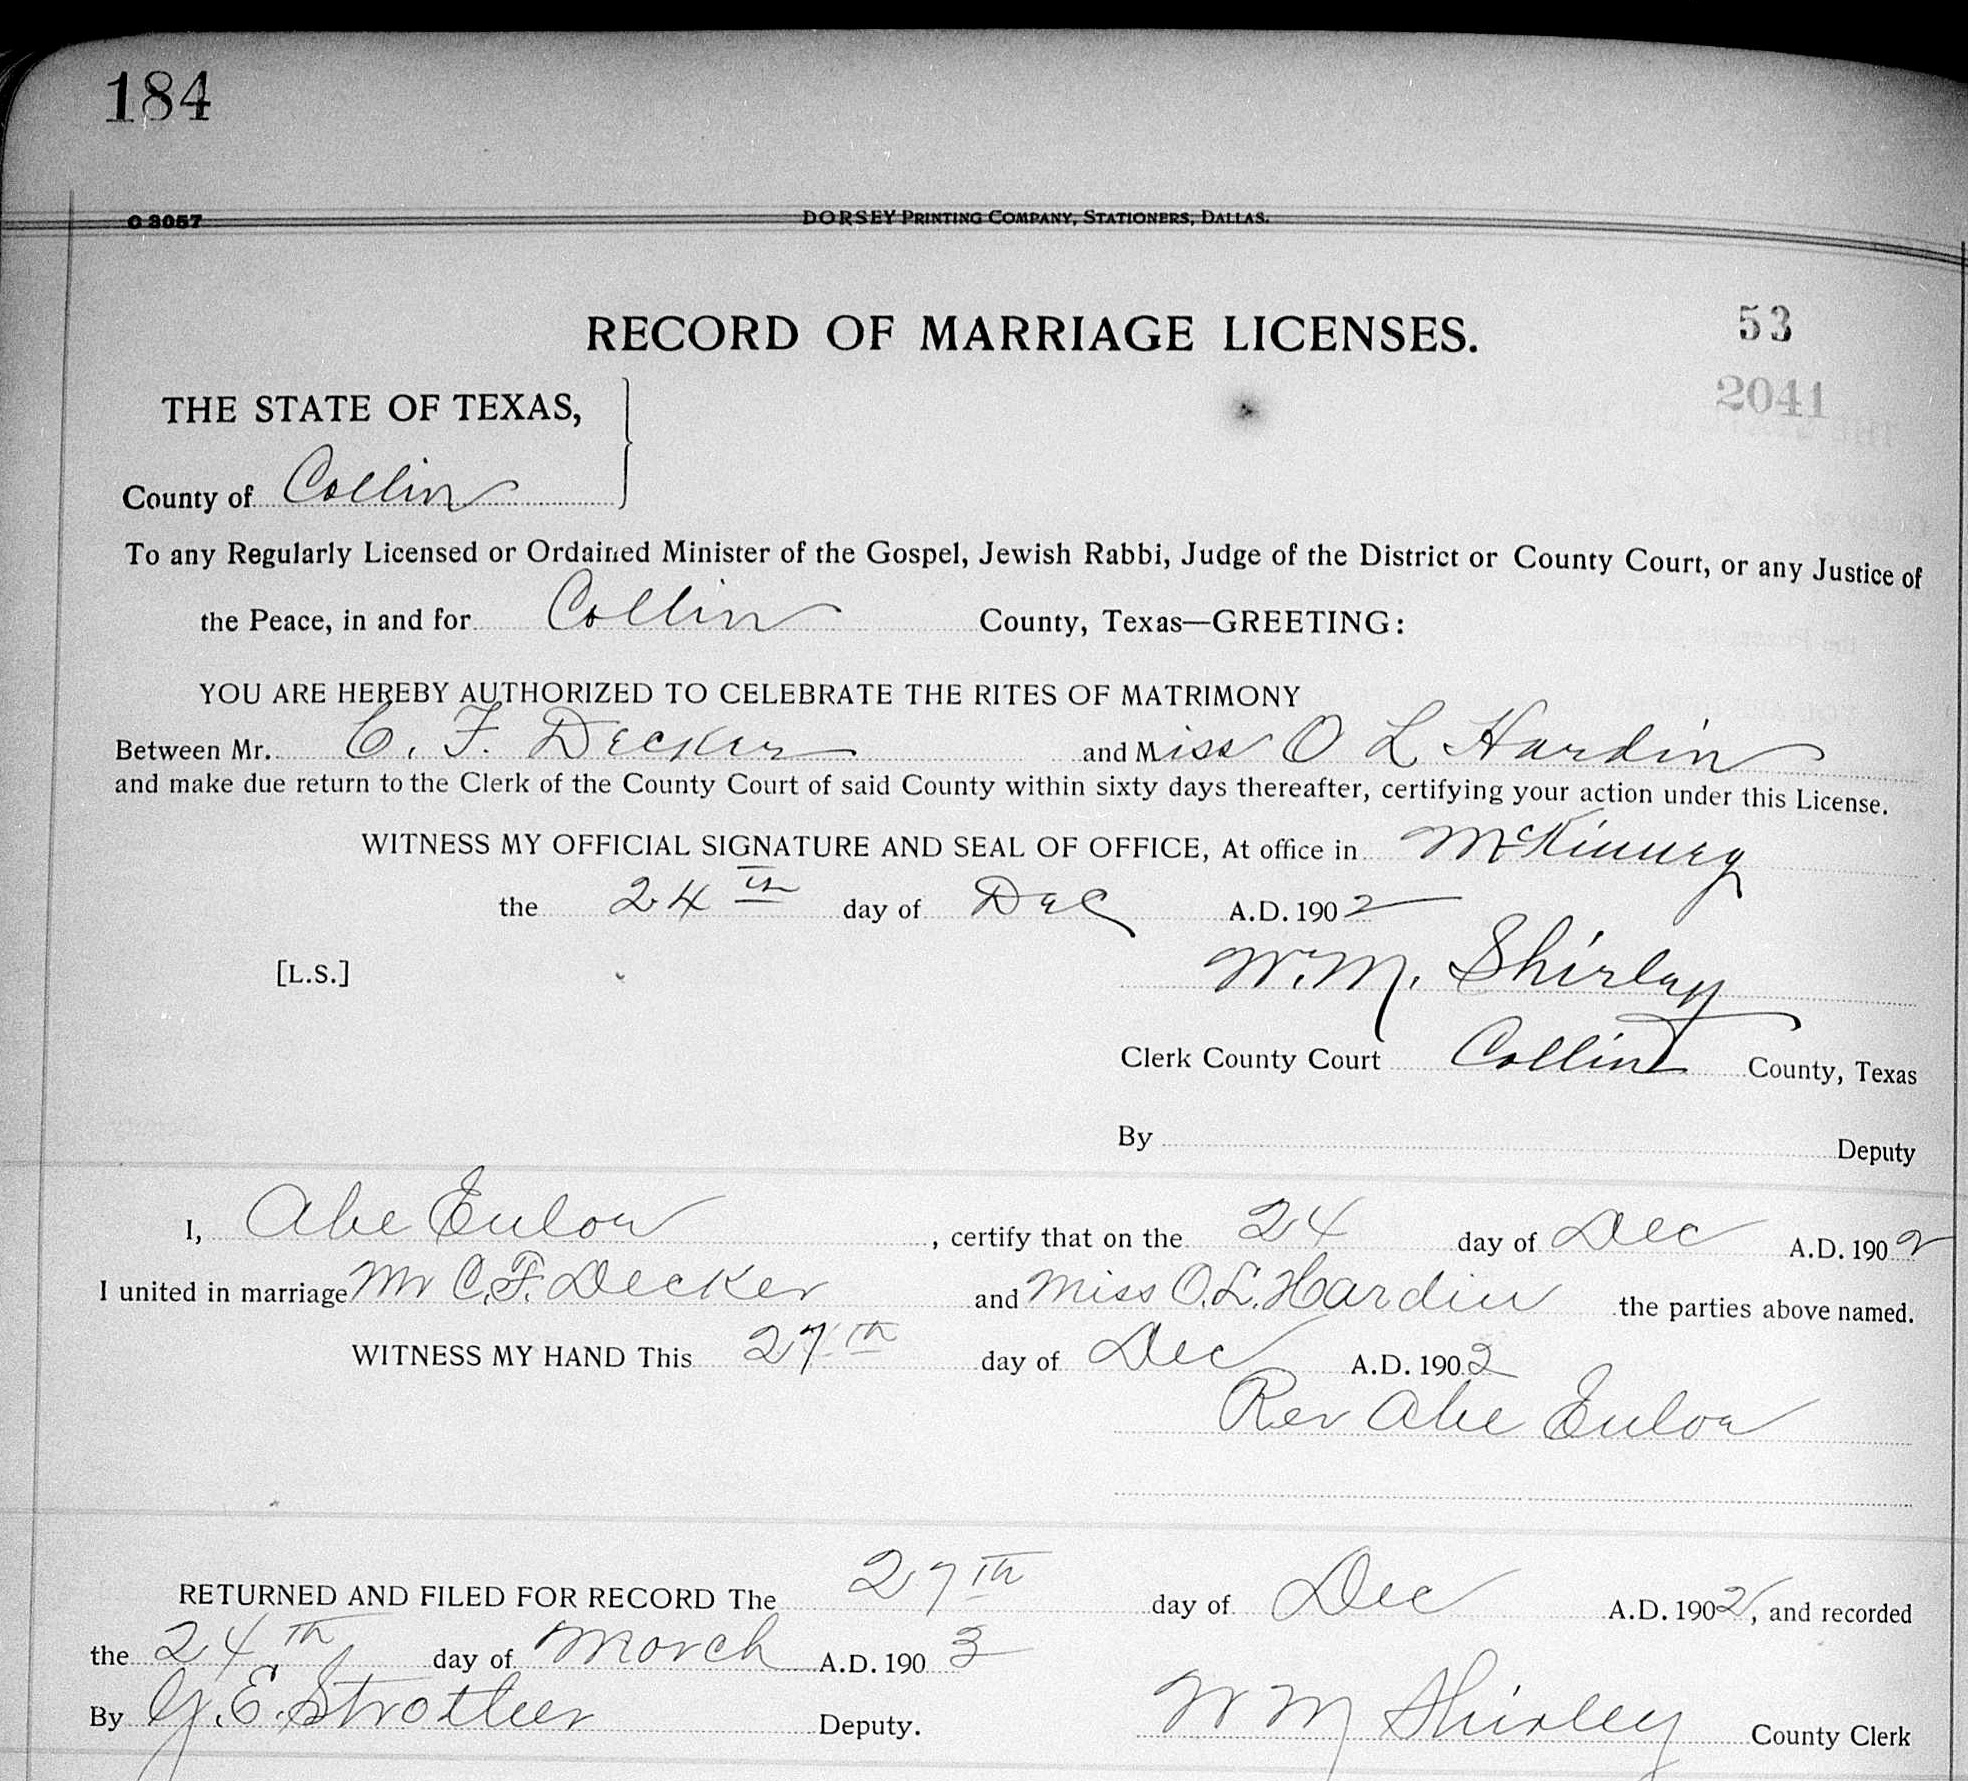 184
C 3057 DORSEY PRINTING COMPANY, STATIONERS, DALLAS.
RECORD OF MARRIAGE LICENSES. 53
2041
THE STATE OF TEXAS,
County of Collin
To any Regularly Licensed or Ordained Minister of the Gospel, Jewish Rabbi, Judge of the District or County Court, or any Justice of
the Peace, in and for Collin County, Texas—GREETING:
YOU ARE HEREBY AUTHORIZED TO CELEBRATE THE RITES OF MATRIMONY
Between Mr. C. F. Decker and Miss O L Hardin
and make due return to the Clerk of the County Court of said County within sixty days thereafter, certifying your action under this License.
WITNESS MY OFFICIAL SIGNATURE AND SEAL OF OFFICE, At office in McKinney
the 24th day of Dec A.D. 1902
[L.S.] W. M. Shirley
Clerk County Court Collin County, Texas
By Deputy
I, Abe Enlow, certify that on the 24 day of Dec A.D. 1902
I united in marriage Mr C. F. Decker and Miss O. L. Hardin the parties above named.
WITNESS MY HAND This 27th day of Dec A.D. 1902
Rev Abe Enlow
RETURNED AND FILED FOR RECORD The 27th day of Dec A.D. 1902, and recorded
the 24th day of March A.D. 1903
By G. E. Strother Deputy. W M Shirley County Clerk